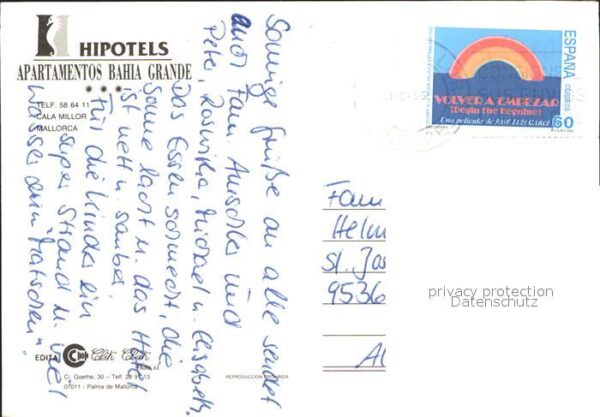 HIPOTELS
APARTAMENTOS BAHIA GRANDE
* * *
TELF. 58 64 11
CALA MILLOR
MALLORCA
Sonnige Grüße an alle sendet
auch Fam. und
Peter, Roswitha, Michael u. Elisabeth,
Das Essen schmeckt, die
Sonne lacht u. das Hotel
ist nett u. sauber.
Für die Kinder ein
super Strand u. viel
Wasser zum Matschen.
EDITA
C/. Goethe, 30 - Telf. 28
07011 - Palma de Mallorca
REPRODUCCION
ESPAÑA
correos
60
VOLVER A EMPEZAR
(Begin the Beguine)
Una película de JOSÉ LUIS GARCI
Fam
Helm
St. Jos
9536
privacy protection
Datenschutz